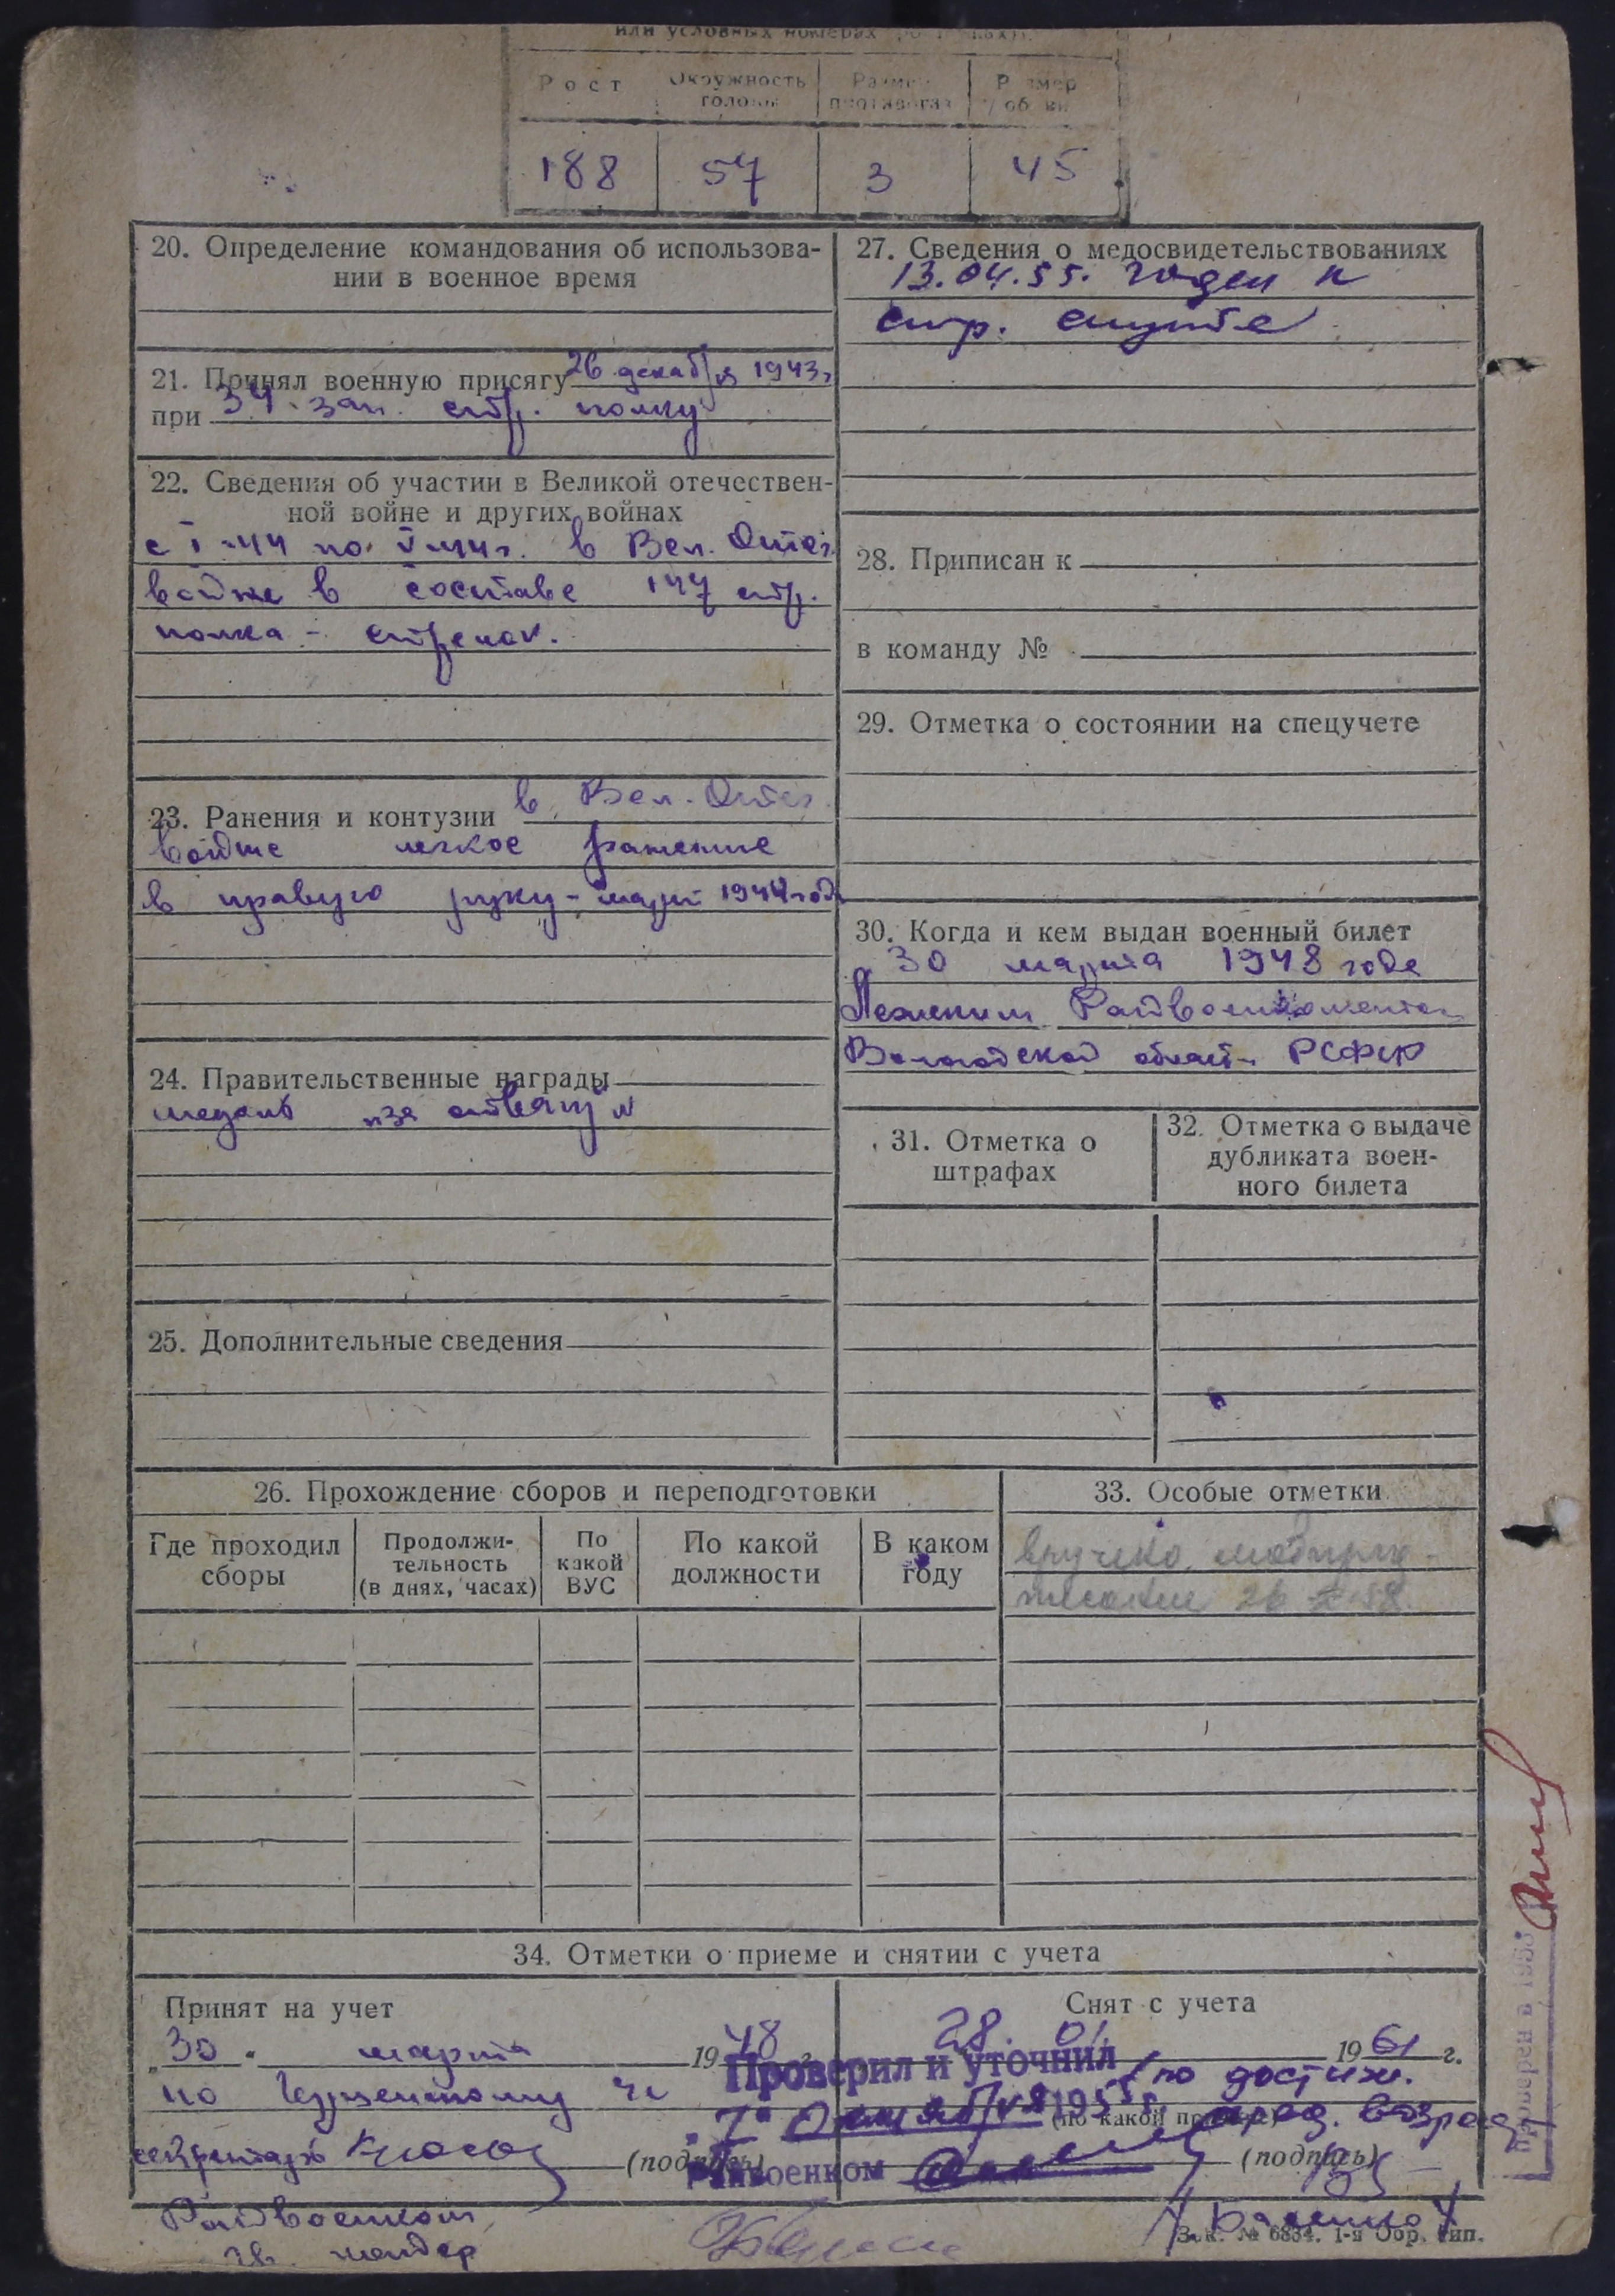 или условных номерах
Рост Окружность головы Размер противогаза Размер обуви
188 57 3 45
20. Определение командования об использова-
нии в военное время
21. Принял военную присягу 26 декабря 1943г
при 34 зап. стр. полку
22. Сведения об участии в Великой отечествен-
ной войне и других войнах
с I-44 по V-44г. в Вел. Отеч.
войне в составе 147 стр.
полка - стрелок.
23. Ранения и контузии в Вел. Отеч.
войне легкое ранение
в правую руку - март 1944 года
24. Правительственные награды
медаль "за отвагу"
25. Дополнительные сведения
27. Сведения о медосвидетельствованиях
13.04.55. годен к
стр. службе
28. Приписан к
в команду №
29. Отметка о состоянии на спецучете
30. Когда и кем выдан военный билет
30 марта 1948 года
Райвоенкоматом
Вологодской области РСФСР
31. Отметка о
штрафах
32. Отметка о выдаче
дубликата воен-
ного билета
26. Прохождение сборов и переподготовки
Где проходил
сборы
Продолжи-
тельность
(в днях, часах)
По
какой
ВУС
По какой
должности
В каком
году
33. Особые отметки
вручено мобпред-
писание 26
34. Отметки о приеме и снятии с учета
Принят на учет
"30" марта 1948 г.
по
секретарь
(подпись)
Райвоенком
Снят с учета
28. 01. 1961 г.
по достиж.
пред. возраста
(по какой причине)
(подпись)
Проверил и уточнил
"7" октября 1955 г.
Райвоенком
Зак. № 6834. 1-я Обр. тип.